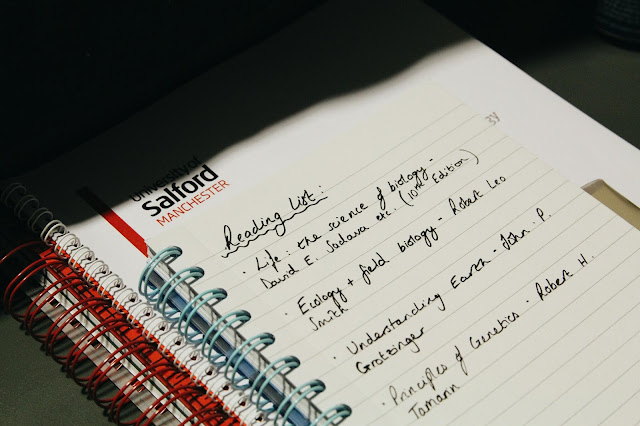 University of
Salford
MANCHESTER
Reading List:
• Life: the science of biology -
David E. Sadava etc. (10th Edition)
• Ecology + field biology - Robert Leo
Smith
• Understanding Earth - John. P.
Grotzinger
• Principles of Genetics - Robert H.
Tamarin